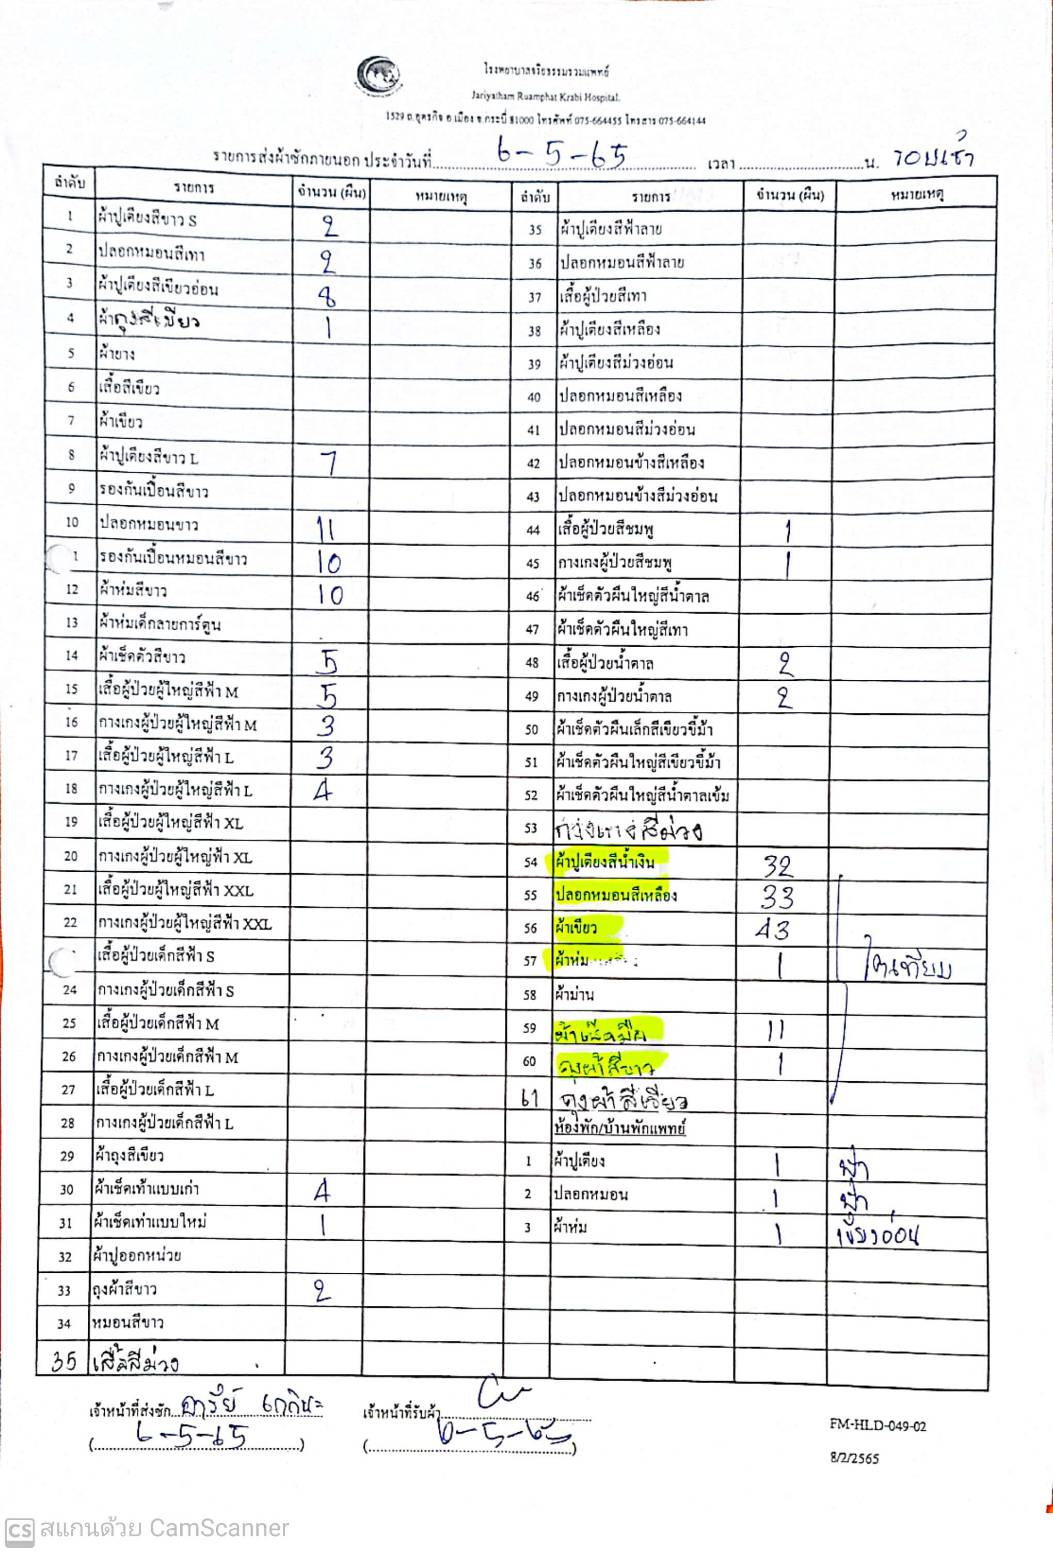 โรงพยาบาลจริยธรรมรวมแพทย์
Jariyatham Ruamphat Krabi Hospital.
1529 ถ.อุตรกิจ อ.เมือง จ.กระบี่ 81000 โทรศัพท์ 075-664455 โทรสาร 075-664144
รายการส่งผ้าซักภายนอก ประจำวันที่ 6-5-65 เวลา น. รอบเช้า
ลำดับ รายการ จำนวน (ผืน) หมายเหตุ ลำดับ รายการ จำนวน (ผืน) หมายเหตุ
1 ผ้าปูเตียงสีขาว S 2 35 ผ้าปูเตียงสีฟ้าลาย
2 ปลอกหมอนสีเทา 2 36 ปลอกหมอนสีฟ้าลาย
3 ผ้าปูเตียงสีเขียวอ่อน 8 37 เสื้อผู้ป่วยสีเทา
4 ผ้าถุงสีเขียว 1 38 ผ้าปูเตียงสีเหลือง
5 ผ้ายาง 39 ผ้าปูเตียงสีม่วงอ่อน
6 เสื้อสีเขียว 40 ปลอกหมอนสีเหลือง
7 ผ้าเขียว 41 ปลอกหมอนสีม่วงอ่อน
8 ผ้าปูเตียงสีขาว L 7 42 ปลอกหมอนข้างสีเหลือง
9 รองกันเปื้อนสีขาว 43 ปลอกหมอนข้างสีม่วงอ่อน
10 ปลอกหมอนขาว 11 44 เสื้อผู้ป่วยสีชมพู 1
1 รองกันเปื้อนหมอนสีขาว 10 45 กางเกงผู้ป่วยสีชมพู 1
12 ผ้าห่มสีขาว 10 46 ผ้าเช็ดตัวผืนใหญ่สีน้ำตาล
13 ผ้าห่มเด็กลายการ์ตูน 47 ผ้าเช็ดตัวผืนใหญ่สีเทา
14 ผ้าเช็ดตัวสีขาว 5 48 เสื้อผู้ป่วยน้ำตาล 2
15 เสื้อผู้ป่วยผู้ใหญ่สีฟ้า M 5 49 กางเกงผู้ป่วยน้ำตาล 2
16 กางเกงผู้ป่วยผู้ใหญ่สีฟ้า M 3 50 ผ้าเช็ดตัวผืนเล็กสีเขียวขี้ม้า
17 เสื้อผู้ป่วยผู้ใหญ่สีฟ้า L 3 51 ผ้าเช็ดตัวผืนใหญ่สีเขียวขี้ม้า
18 กางเกงผู้ป่วยผู้ใหญ่สีฟ้า L 4 52 ผ้าเช็ดตัวผืนใหญ่สีน้ำตาลเข้ม
19 เสื้อผู้ป่วยผู้ใหญ่สีฟ้า XL 53 กางเกงสีม่วง
20 กางเกงผู้ป่วยผู้ใหญ่ฟ้า XL 54 ผ้าปูเตียงสีน้ำเงิน 32
21 เสื้อผู้ป่วยผู้ใหญ่สีฟ้า XXL 55 ปลอกหมอนสีเหลือง 33
22 กางเกงผู้ป่วยผู้ใหญ่สีฟ้า XXL 56 ผ้าเขียว 43
เสื้อผู้ป่วยเด็กสีฟ้า S 57 ผ้าห่ม 1 ไตเทียม
24 กางเกงผู้ป่วยเด็กสีฟ้า S 58 ผ้าม่าน
25 เสื้อผู้ป่วยเด็กสีฟ้า M 59 ผ้าเช็ดมือ 11
26 กางเกงผู้ป่วยเด็กสีฟ้า M 60 ถุงผ้าสีขาว 1
27 เสื้อผู้ป่วยเด็กสีฟ้า L 61 ถุงผ้าสีเขียว
28 กางเกงผู้ป่วยเด็กสีฟ้า L ห้องพัก/บ้านพักแพทย์
29 ผ้าถุงสีเขียว 1 ผ้าปูเตียง 1 ฟ้า
30 ผ้าเช็ดเท้าแบบเก่า 4 2 ปลอกหมอน 1 ฟ้า
31 ผ้าเช็ดเท้าแบบใหม่ 1 3 ผ้าห่ม 1 เขียวอ่อน
32 ผ้าปูออกหน่วย
33 ถุงผ้าสีขาว 2
34 หมอนสีขาว
35 เสื้อสีม่วง
เจ้าหน้าที่ส่งซัก เจ้าหน้าที่รับผ้า
(6-5-65) (6-5-65) FM-HLD-049-02
8/2/2565
CS สแกนด้วย CamScanner